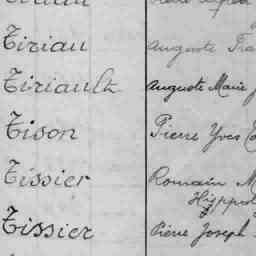 Tiriau Auguste
Tiriault Auguste Marie
Tison Pierre Yves
Tissier Romain
Hippol
Tissier Pierre Joseph